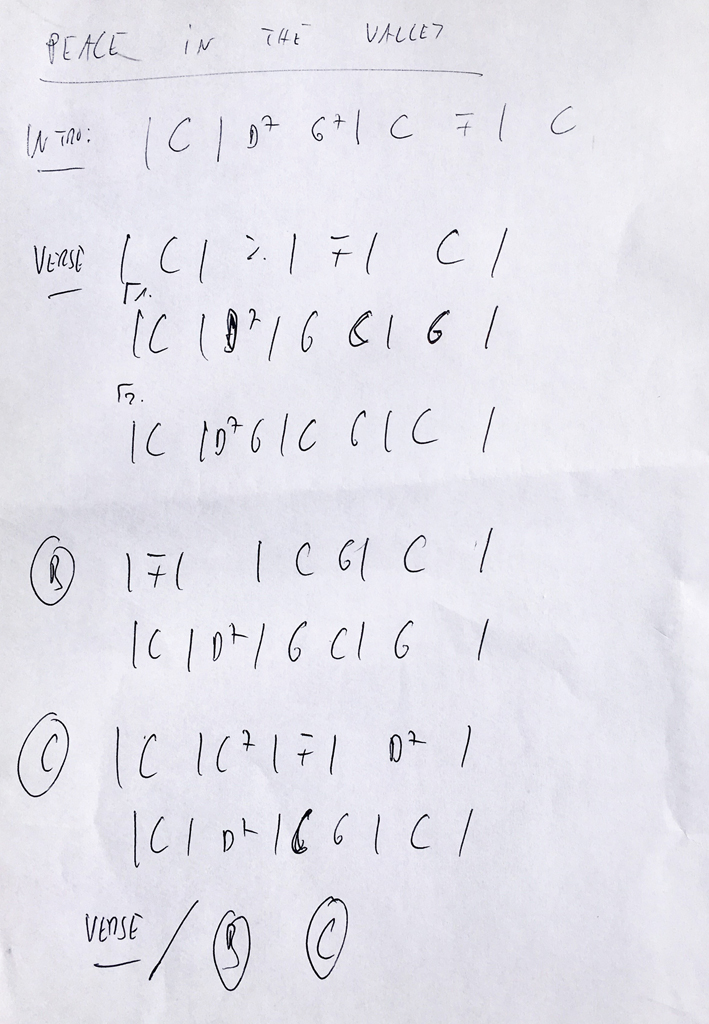 PEACE IN THE VALLEY
INTRO: | C | D7 G7 | C F | C
VERSE | C | ٪ | F | C |
1.
| C | D7 | G C | G |
2.
| C | D7 G | C G | C |
B | F | | C G | C |
| C | D7 | G C | G |
C | C | C7 | F | D7 |
| C | D7 | C G | C |
VERSE / B C